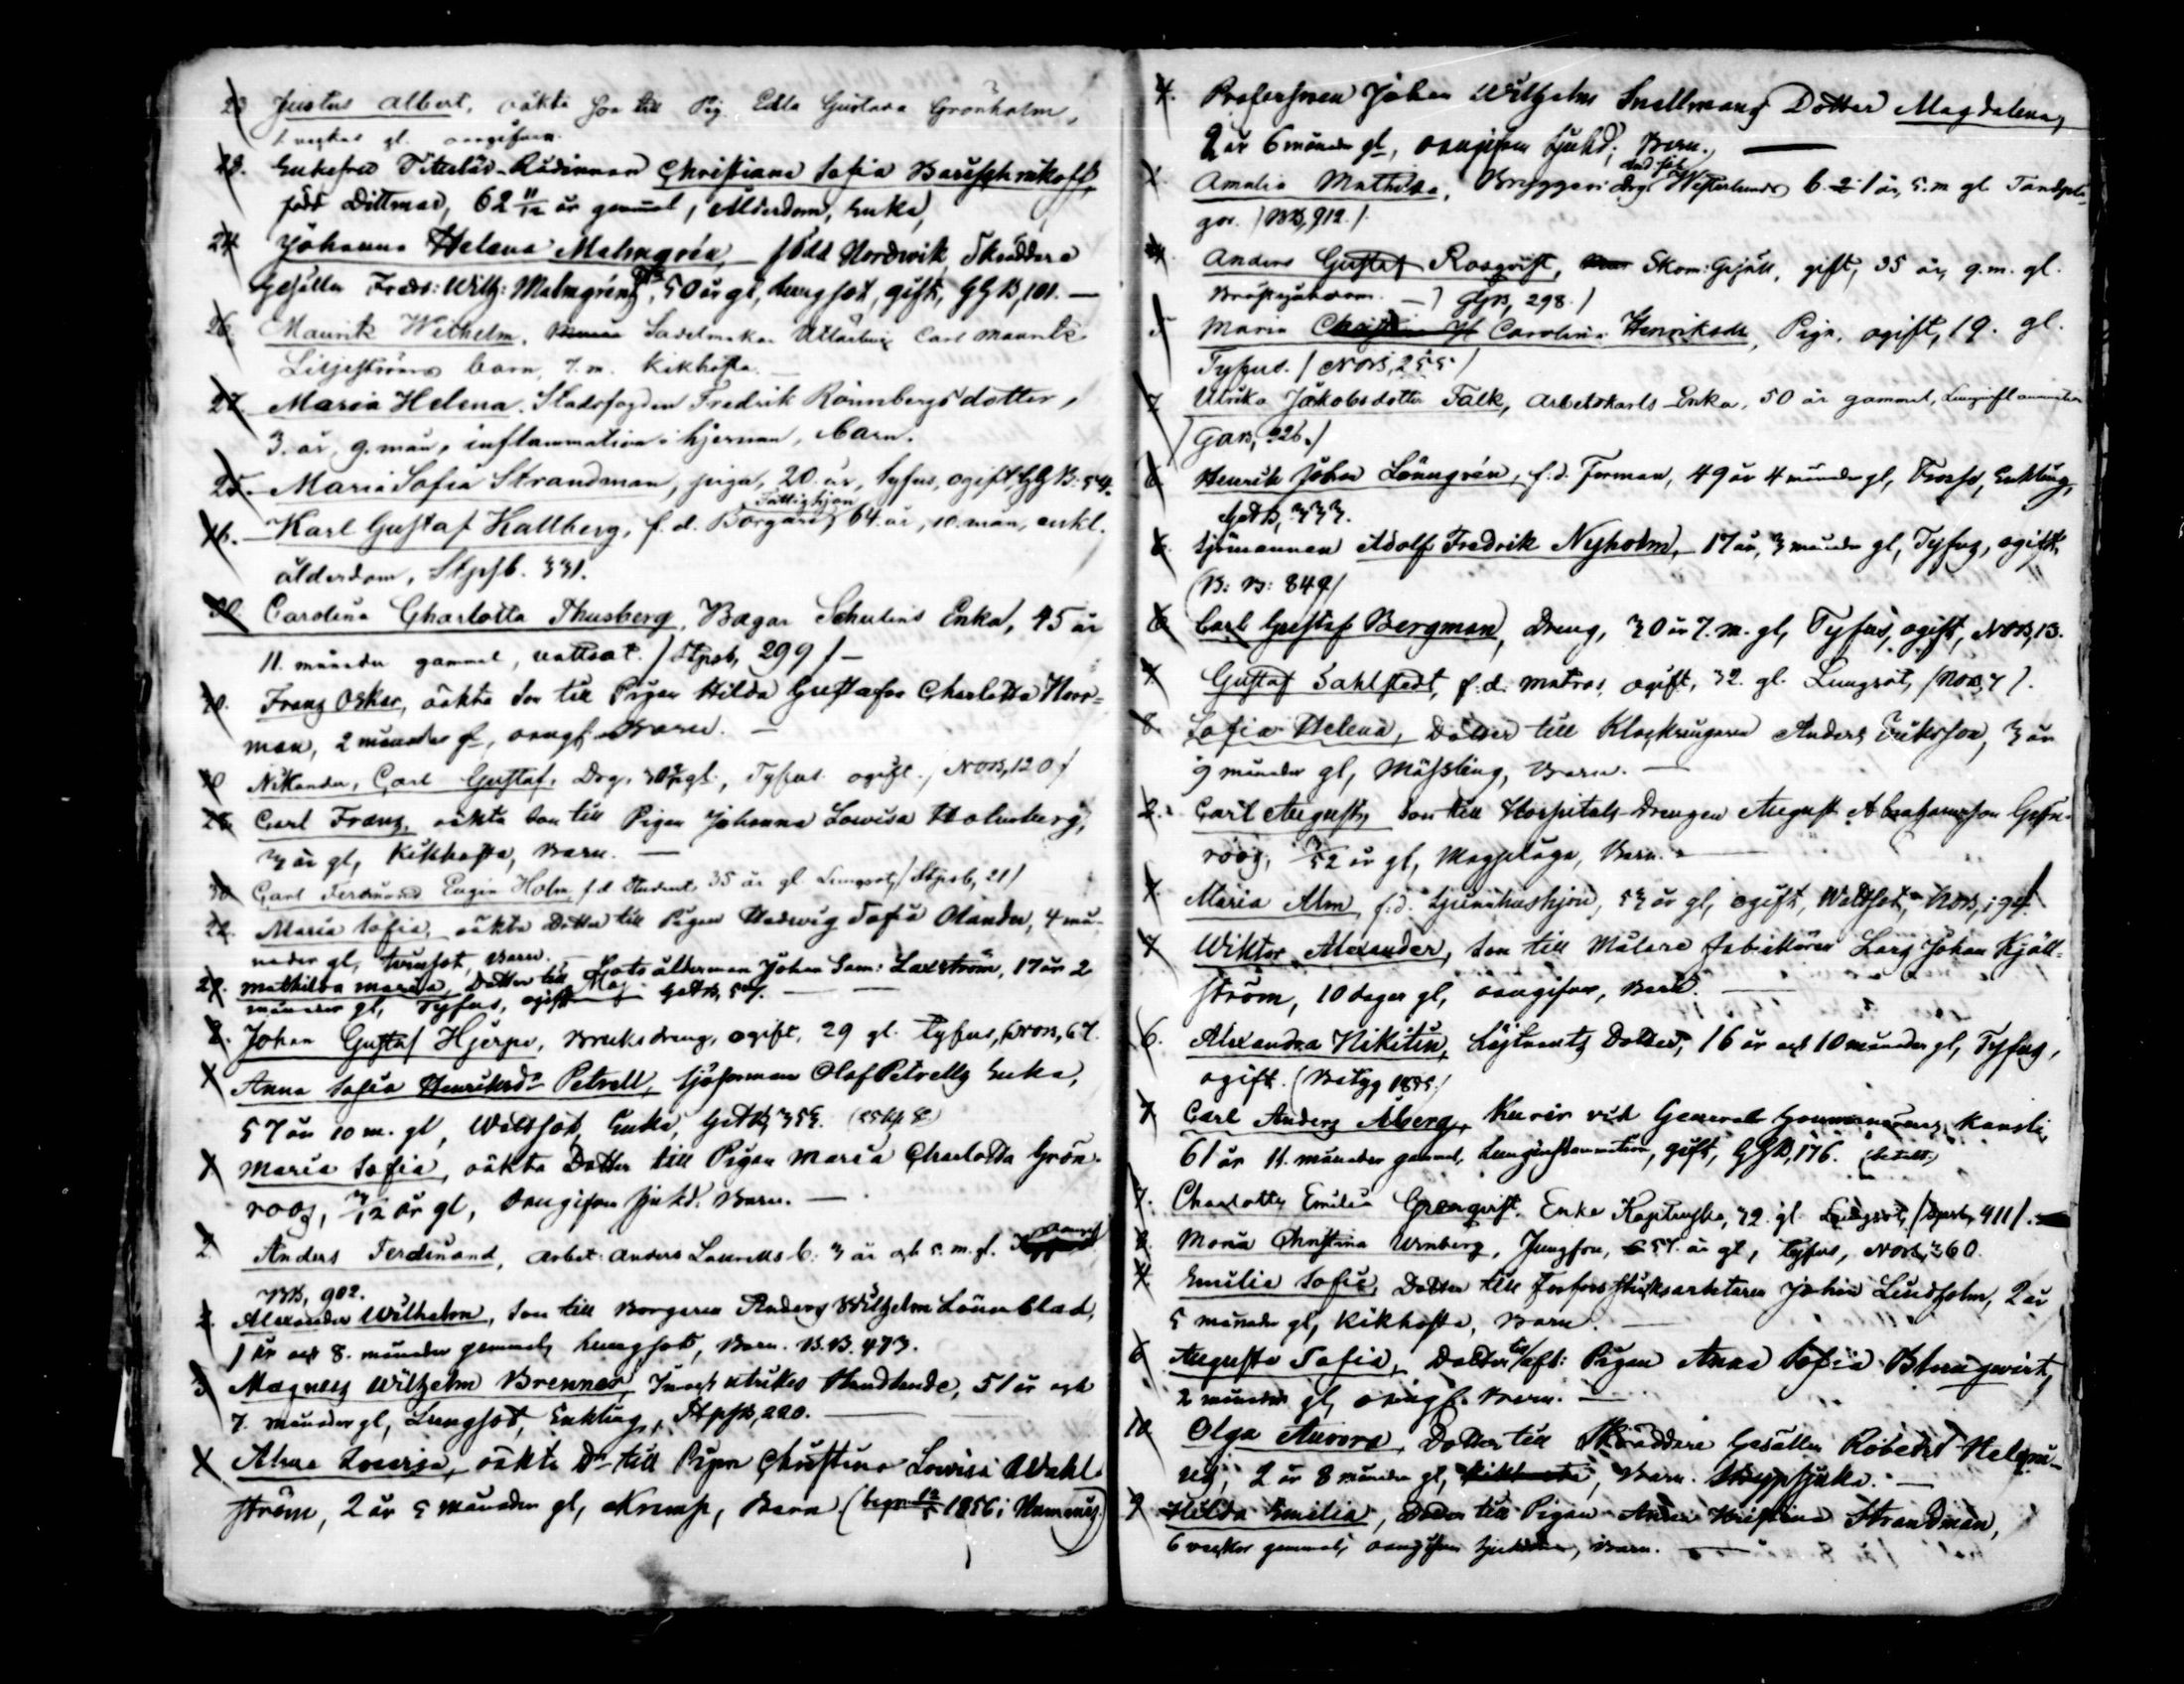 23 Justus Albert, oäkta son till Pig. Edla Gustava Grönholm,
veckor gl. oangifven.
28. Enkefru Titulär-Rådinnan Christiana Sofia
född Dittmar, 62 11/12 år gammal, Ålderdom, Enka,
24 Johanna Helena Malmgrén, född Nordwik, Skräddare
Gesällen Fredr: Wilh: Malmgréns, 50 år gl, Lungsot, gift, GGB, 101. —
26. Maurik Wilhelm, Sadelmakar Carl Mauritz
Liljeströms barn, 7. m. Kikhosta. —
27. Maria Helena, Stadsfogden Fredrik Rönnbergs dotter,
3. år, 9. mån, inflammation i hjernan, barn.
25. Maria Sofia Strandman, piga, 20. år, tyfus, ogift, GGB: 54.
Fattighjon
16. Karl Gustaf Hallberg, f. d. Borgare, 64. år, 10. mån, enkl.
ålderdom, Stpsb. 331.
30. Carolina Charlotta Thusberg, Bagar Schulins Enka, 45 år
11. månader gammal, vattsot. / Stpsb, 299 / —
30. Franz Oskar, oäkta Son till Pigan Hilda Gustafva Charlotta Norr-
man, 2 månader gl, oangf. Barn. —
30 Nikander, Carl Gustaf, Drg, gl., Tyfus ogift. / NorB, 120 /
Carl Franz, oäkta Son till Pigan Johanna Lowisa Holmberg,
3 år gl, Kikhosta, Barn. —
30. Carl Ferdinand Eugin Holm, f.d. Student 35 år gl. Lungsot, / Stpsb, 21 /
22. Maria Sofia, oäkta Dotter till Pigan Hedwig Sofia Olander, 4 må-
nader gl, Barn. —
29. Mathilda Maria, Dotter till Lots ålderman Johan Sam: Laxström, 17 år 2
månader gl, Tyfus, ogift Maj GatB, 57. —
2. Johan Gustaf Hjerpe, Bruksdreng, ogift, 29 gl. tyfus, NorB, 67.
Anna Sofia Henriksdr Petrell, Sjöforman Olof Petrells Enka,
57 år 10 m. gl, Wattsot, Enka, GatB, 353.
Maria Sofia, oäkta Dotter till Pigan Maria Charlotta Grön-
roos, 3/12 år gl, Oangifven sjukd. Barn. —
2 Anders Ferdinand, Arbet. Anders Laurells b. 3 år och 5. m. gl.
BB, 902.
2. Alexander Wilhelm, Son till Borgaren Anders Wilhelm Lönnblad,
1 år och 8. månader gammal, Lungsot, Barn. B.B. 473.
3 Magnus Wilhelm Brenner, Inrest utrikes Handlande, 51 år och
7. månader gl, Lungsot, Enkling, StpsB, 220. —
Alma Lovisa, oäkta Dr till Pigan Christina Lowisa Wahl-
ström, 2 år 5 månader gl, Kramp, Barn. (begr. 1856 i Nummis.)
4. Professoren Johan Wilhelm Snellmans Dotter Magdalena,
2 år 6 månader gl, oangifven sjukd; Barn. —
Amalia Mathilda, Bryggeri drg Westerlunds b. 1 år, 5. m gl Tandpla-
gor. / BB, 912. /
Anders Gustaf Rosqvist, Skom: Gesäll, gift, 35 år, 9. m. gl.
Bröstsjukdom. — / GGB, 298. /
5 Maria Carolina Henriksdr, Piga, ogift, 19. gl.
Tyfus. / NorB, 255 /
7 Ulrika Jakobsdotter Falk, Arbetskarls Enka, 50 år gammal, Lunginflammation
/ GaB, 226. /
6. Henrik Johan Lönngrén, f. d. Forman, 49 år 4 månader gl, Frossa, Enkling,
GatB, 333.
6. Sjömannen Adolf Fredrik Nyholm, 17 år, 3 månader gl, Tyfus, ogift,
(B: B: 849)
6. Carl Gustaf Bergman, Dreng, 30 år 7. m. gl, Tyfus, ogift, NorB, 13.
7. Gustaf Sahlstedt, f. d. Matros, ogift, 32. gl. Lungsot, (NorB, 7).
8. Sofia Helena, Dotter till Klockringaren Anders Eriksson, 3 år
9 månader gl, Mässling, Barn. —
2. Carl August, Son till Hospitals-Drengen August Abrahamsson Grön-
roos, 3/52 år gl, Magplåga, Barn. —
Maria Alm, f. d. Spinnhushjon, 53 år gl, ogift, Wattsot, NorB, 194.
7 Wiktor Alexander, Son till Målare fabrikören Lars Johan Kjäll-
ström, 10 dagar gl, oangifven, Barn. —
6. Alexandra Nikitin, Löjtnants Dotter, 16 år och 10 månader gl, Tyfus,
ogift. (Betyg 1855.)
7 Carl Anders Åberg, Kurir vid General Gouverneurens kansli,
61 år 11. månader gammal, Lunginflammation, gift, GGB, 176. (betalt.)
7. Charlotta Emilia Grenqvist, Enka Kapitenska, 32. gl. Lungsot, / Stpsb, 411 /. —
8. Maria Christina Winberg, Jungfru, 57. år gl, tyfus, NorB, 360.
4. Emilia Sofia, Dotter till Fosforsticksarbetaren Johan Lindholm, 2 år
5 månader gl, Kikhosta, Barn. —
6 Augusta Sofia, Dotter till afl: Pigan Anna Sofia Blomqwist,
2 månader gl, oangf. Barn. —
10 Olga Aurora, Dotter till Skräddare Gesällen Robert Helgre-
us, 2 år 8 månader gl, Kikhosta, Barn. Strypsjuka. —
9 Hilda Emilia, Dotter till Pigan Anna Kristina Strandman,
6 veckor gammal, oangifven sjukdom, Barn. —